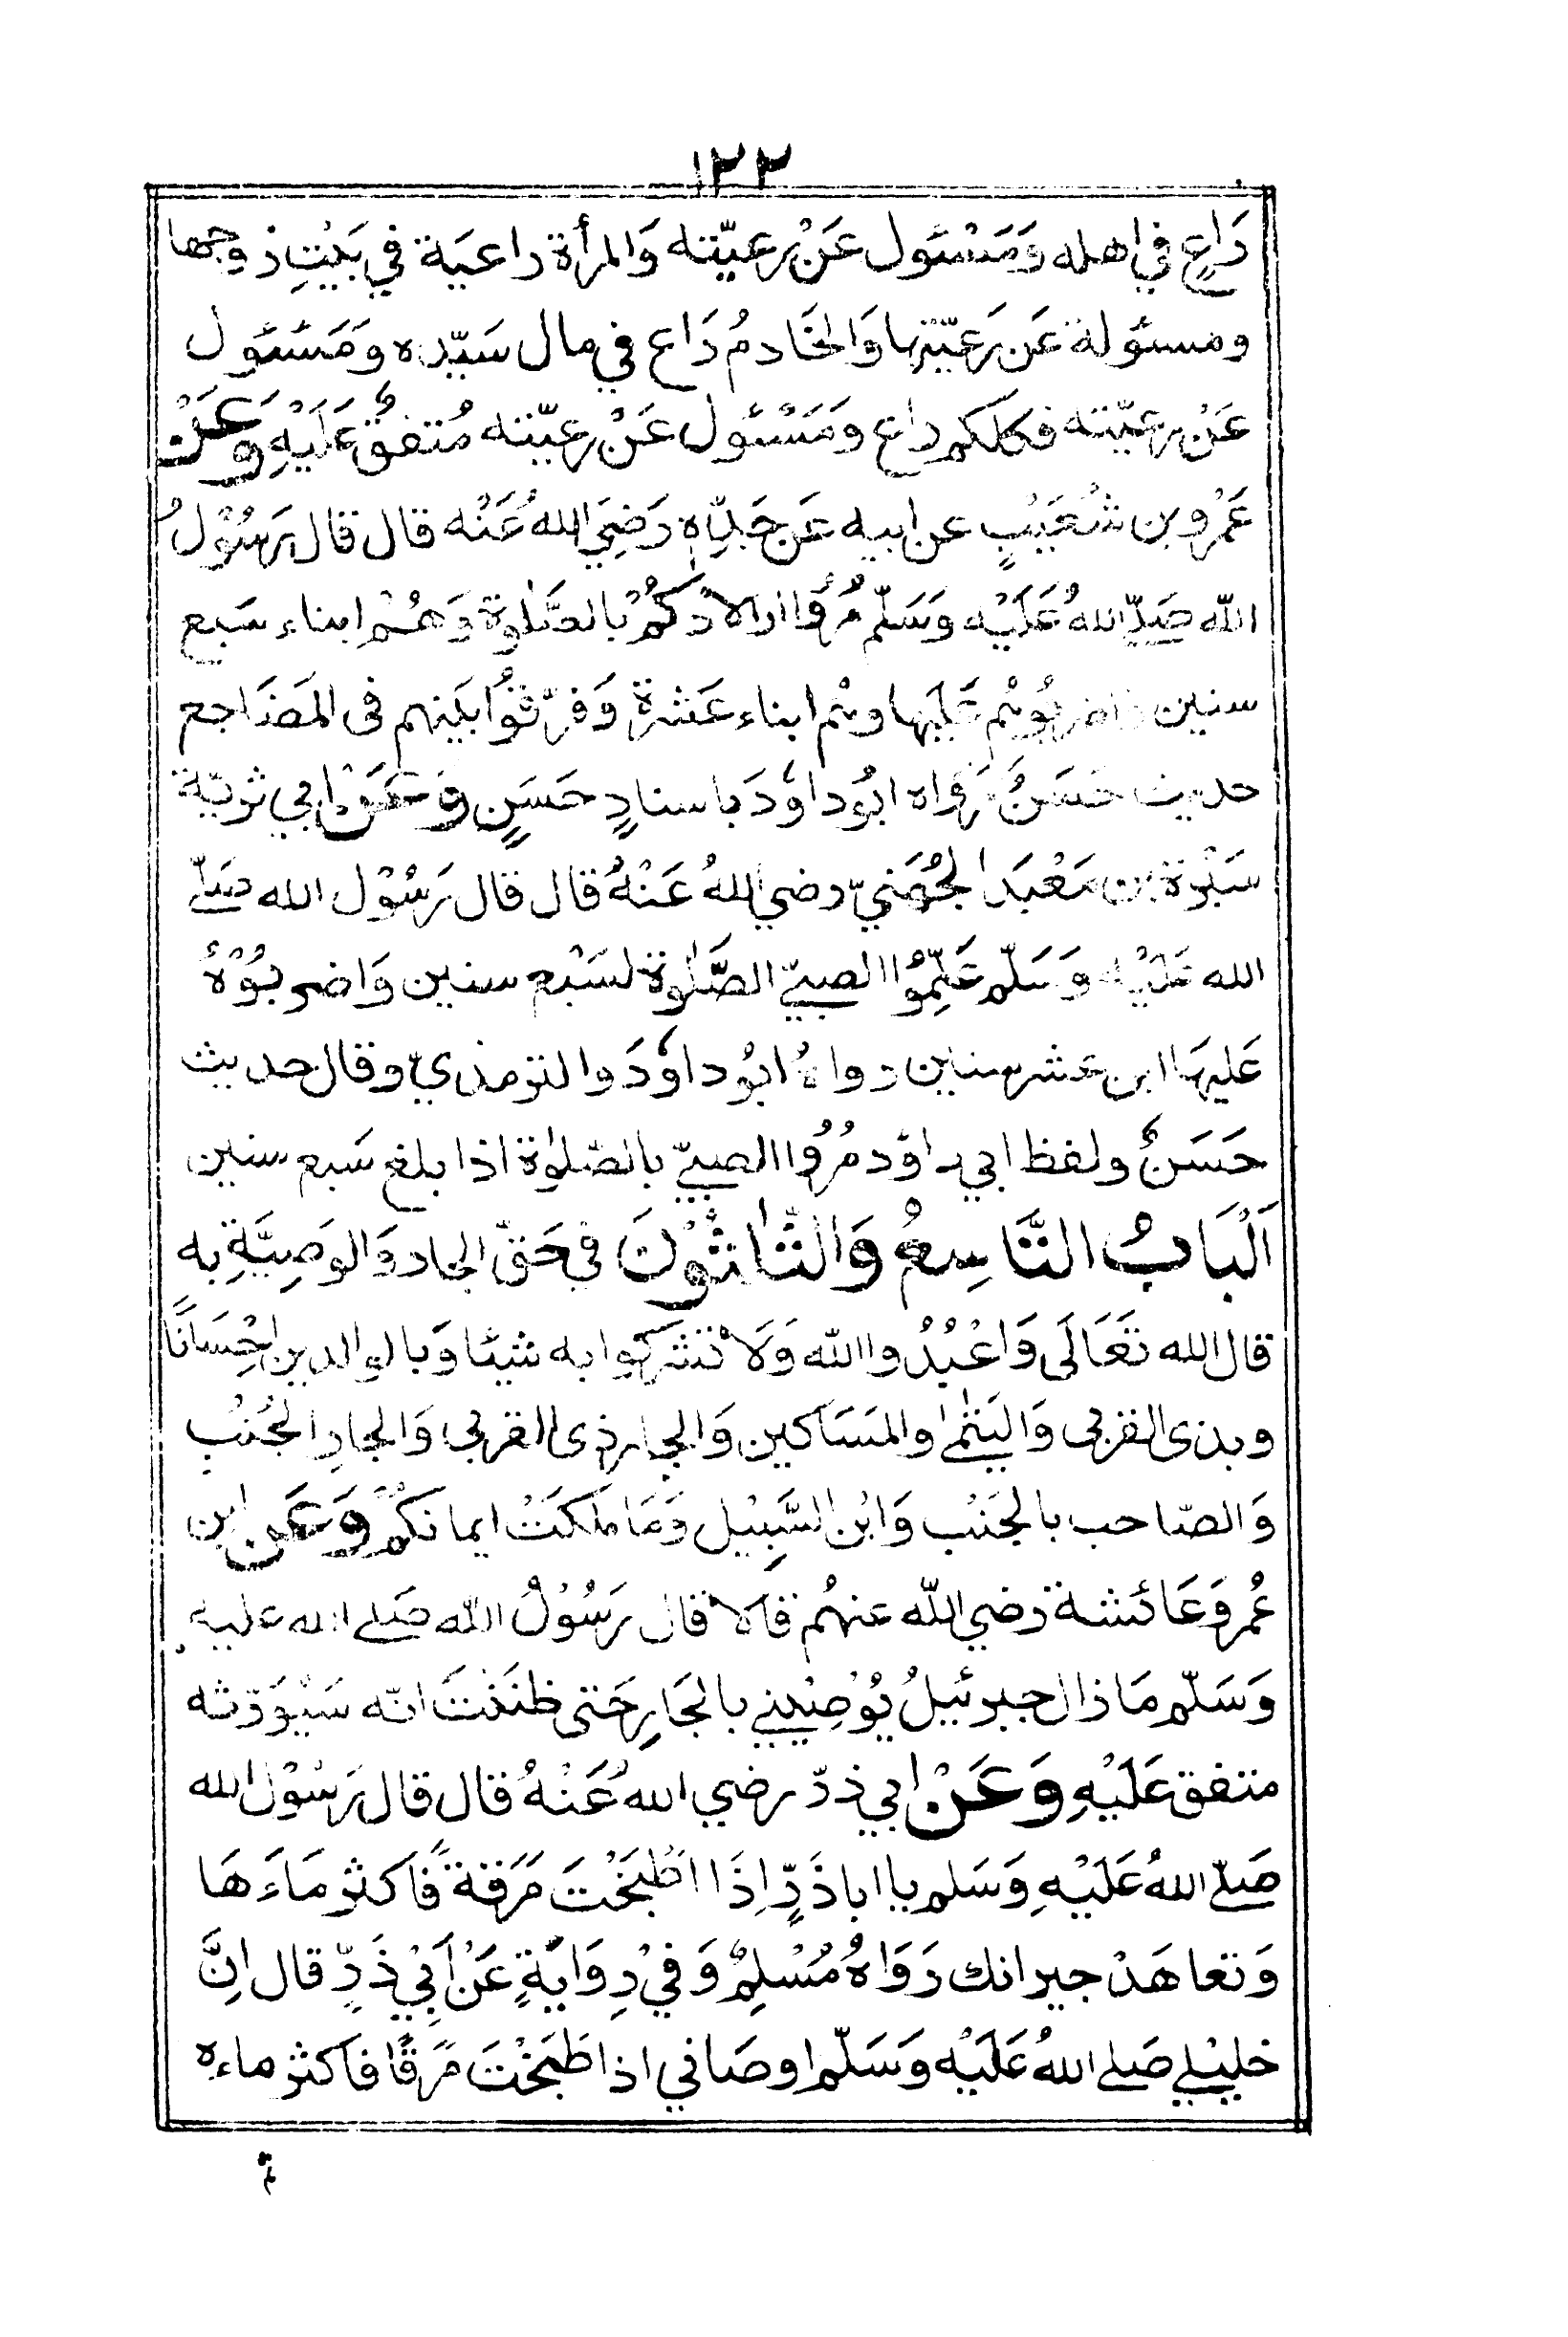 ١٢٢
رَاعٍ في اهله وَمَسْئول عَنْ رعيّته وَالمرأة راعيَة في بَيْتِ زوجها
ومسئولة عَن رَعيّتِها وَالخَادمُ رَاع في مال سَيّده وَمَسْئول
عَنْ رعيّته فكلكم راع وَمَسْئول عَنْ رعيّته مُتفقٌ عَلَيْهِ وَعَنْ
عَمْرو بن شُعَيْبٍ عن ابيه عَن جَدِّهِ رَضِيَ اللهُ عَنْه قال قال رَسُوْلُ
الله صَلّى اللهُ عَلَيْه وَسَلّم مُرُوْا اولادكُمْ بالصَّلٰوة وَهُمْ ابناء سَبع
سنين واضربُوْهُم عَلَيها وهم ابناء عَشرة وَفرّقوْا بَينهم فى المَضَاجع
حديث حَسَنٌ رَوَاه ابُو داوٗدَ باسنادٍ حَسَنٍ وَعَنْ ابي ثريّة
سَبْرَة بن مَعْبَد الجُهَنيّ رضي اللهُ عَنْهُ قال قال رَسُوْل الله صَلّى
الله عَلَيْه وَسَلّم عَلِّمُوْا الصبيّ الصَّلٰوة لسَبْع سنين وَاضربُوْهُ
عَليهَا ابن عَشر سنين رواهُ ابُو داوٗدَ والترمذيّ وقال حديث
حَسَنٌ ولفظ ابي داوٗد مُرُوْا الصبيّ بالصّلٰوة اذا بلغ سَبع سنين
اَلْبَابُ التَّاسِعُ وَالثَّلٰثُوْنَ في حَقّ الجار وَالوَصِيَّةِ به
قال الله تَعَالَى وَاعْبُدُوا الله وَلَا تشركوا به شيئا وَبالوالدين اِحْسَانًا
وبذى القربى وَاليَتٰمٰى والمَسَاكين وَالجار ذى القربى وَالجارِ الجُنُبِ
وَالصّاحب بالجَنْب وَابْن السَّبِيْل وَمَا مَلكَتْ ايمانكُمْ وَعَن ابن
عُمر وَعَائشة رَضي الله عنهُم قالا قال رَسُوْلُ الله صَلى الله عليه
وَسَلّم مَا زال جبرئيلُ يُوْصِيْني بالجَارِ حَتى ظنَنتُ انّه سَيُوَرّثه
متفق عَلَيْهِ وَعَنْ ابي ذرّ رضي اللهُ عَنْهُ قال قال رَسُوْل الله
صَلّى اللهُ عَلَيْهِ وَسَلم يا ابا ذَرٍّ اِذَا اطبَخْتَ مَرَقة فَاكثر مَاءَهَا
وَتعاهَدْ جيرانك رَوَاهُ مُسْلِمٌ وَفيْ رِوَايَةٍ عَنْ اَبِيْ ذَرٍّ قال اِنَّ
خليلي صَلى اللهُ عَلَيْه وَسَلّم اوصَاني اذا طَبَخْتَ مَرَقًا فاَكثر ماءه
ثم